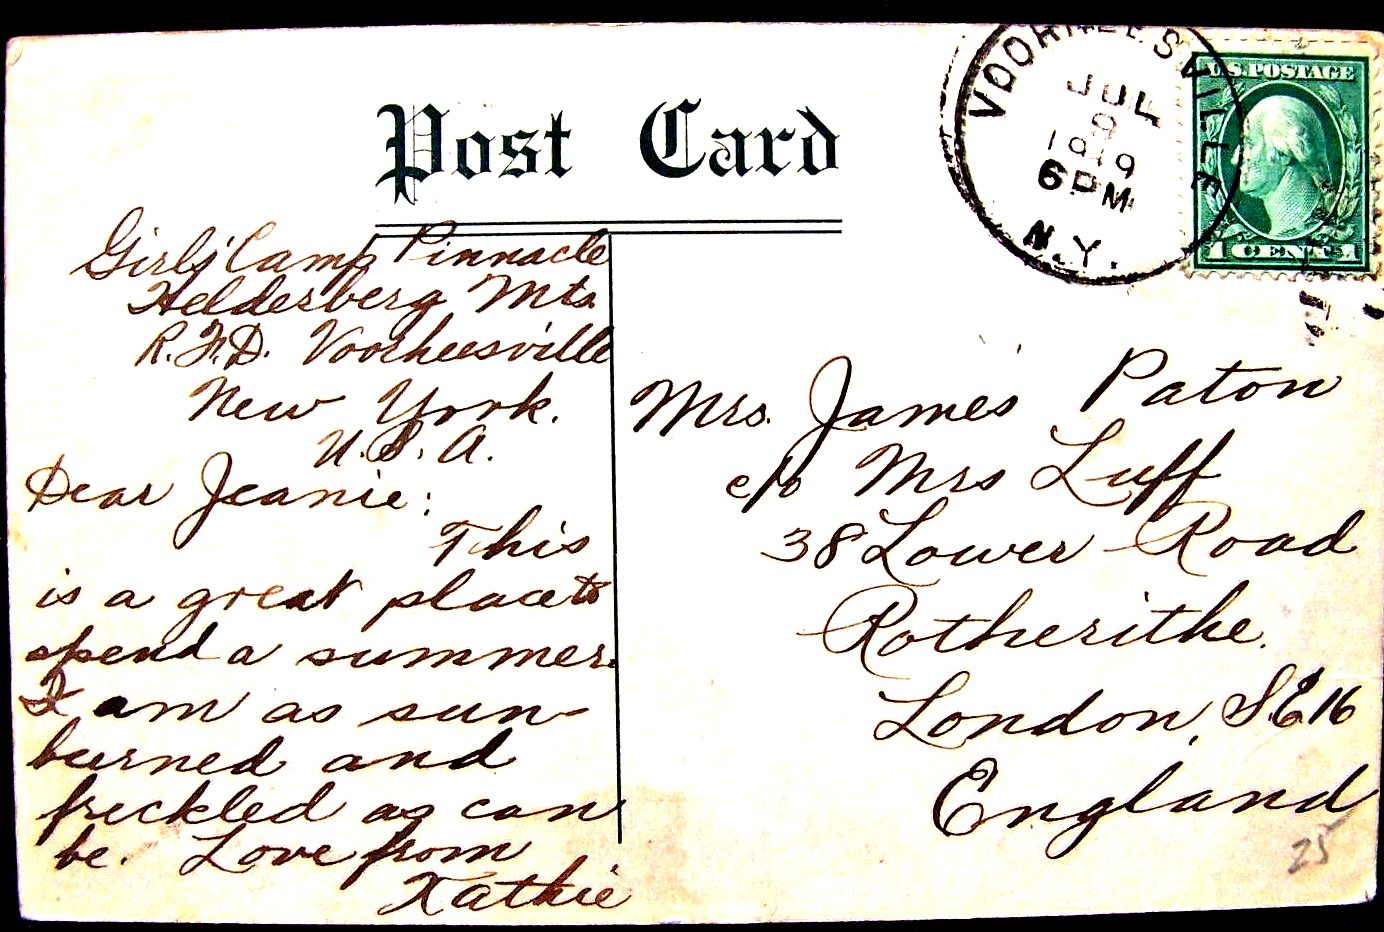 Post Card
VOORHEESVILLE
JUL
9
1919
6 PM
N.Y.
U.S. POSTAGE
1 CENT 1
Girls' Camp Pinnacle
Helderberg Mts.
R.F.D. Voorheesville
New York.
U.S.A.
Dear Jeanie:
This
is a great place to
spend a summer.
I am as sun-
burned and
freckled as can
be. Love from
Kathie
Mrs. James Paton
c/o Mrs Luff
38 Lower Road
Rotherithe.
London, S.E.16
England
25